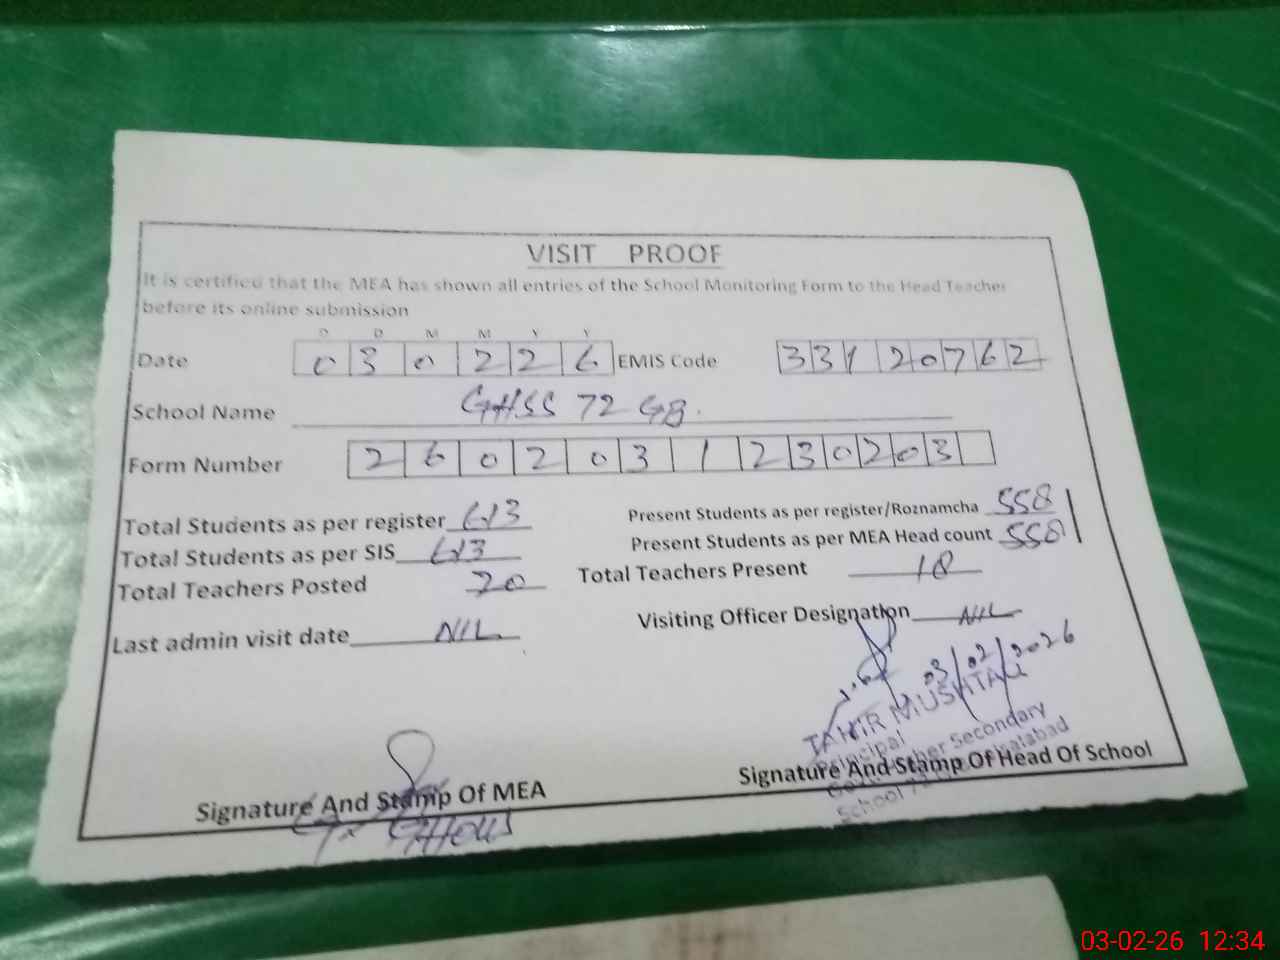 VISIT PROOF
It is certified that the MEA has shown all entries of the School Monitoring Form to the Head Teacher
before its online submission
D D M M Y Y
Date 0 3 0 2 2 6 EMIS Code 3 3 1 2 0 7 6 2
School Name GHSS 72 GB.
Form Number 2 6 0 2 0 3 1 2 3 0 2 0 3
Total Students as per register 613 Present Students as per register/Roznamcha 558
Total Students as per SIS 613 Present Students as per MEA Head count 558
Total Teachers Posted 20 Total Teachers Present 18
Last admin visit date NIL Visiting Officer Designation NIL
03/02/2026
TAHIR MUSHTAQ
Principal
Govt. Higher Secondary
School 72
Signature And Stamp Of MEA Signature And Stamp Of Head Of School
03-02-26 12:34